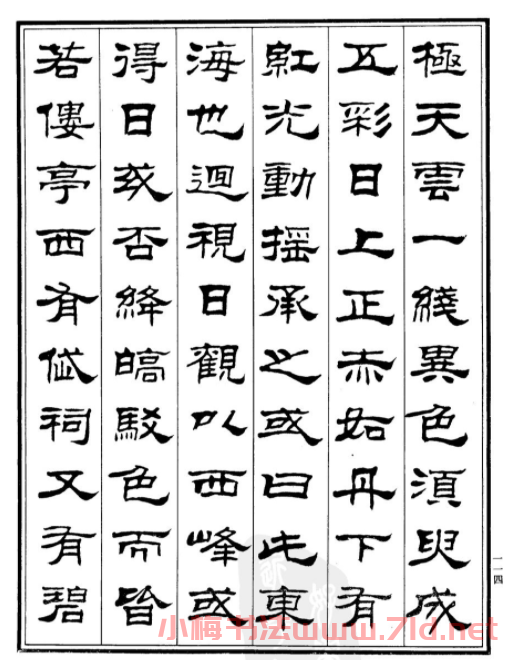 極天雲一綫異色須臾成
五彩日上正赤如丹下有
紅光動搖承之或曰此東
海也迴視日觀以西峰或
得日或否絳皜駁色而皆
若僂亭西有岱祠又有碧
一一四
小梅书法www.7ld.net